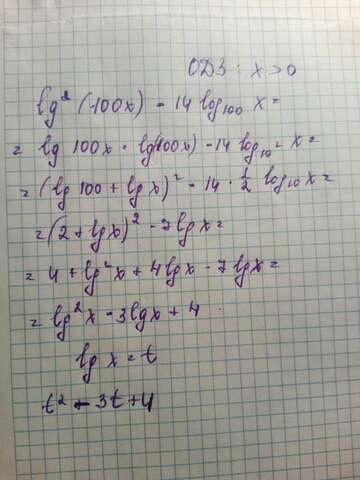 ОДЗ: x > 0
lg² (100x) - 14 log₁₀₀ x =
= lg 100x · lg(100x) - 14 log₁₀² x =
= (lg 100 + lg x)² - 14 · 1/2 log₁₀ x =
= (2 + lg x)² - 7 lg x =
= 4 + lg² x + 4 lg x - 7 lg x =
= lg² x - 3 lg x + 4
lg x = t
t² - 3t + 4